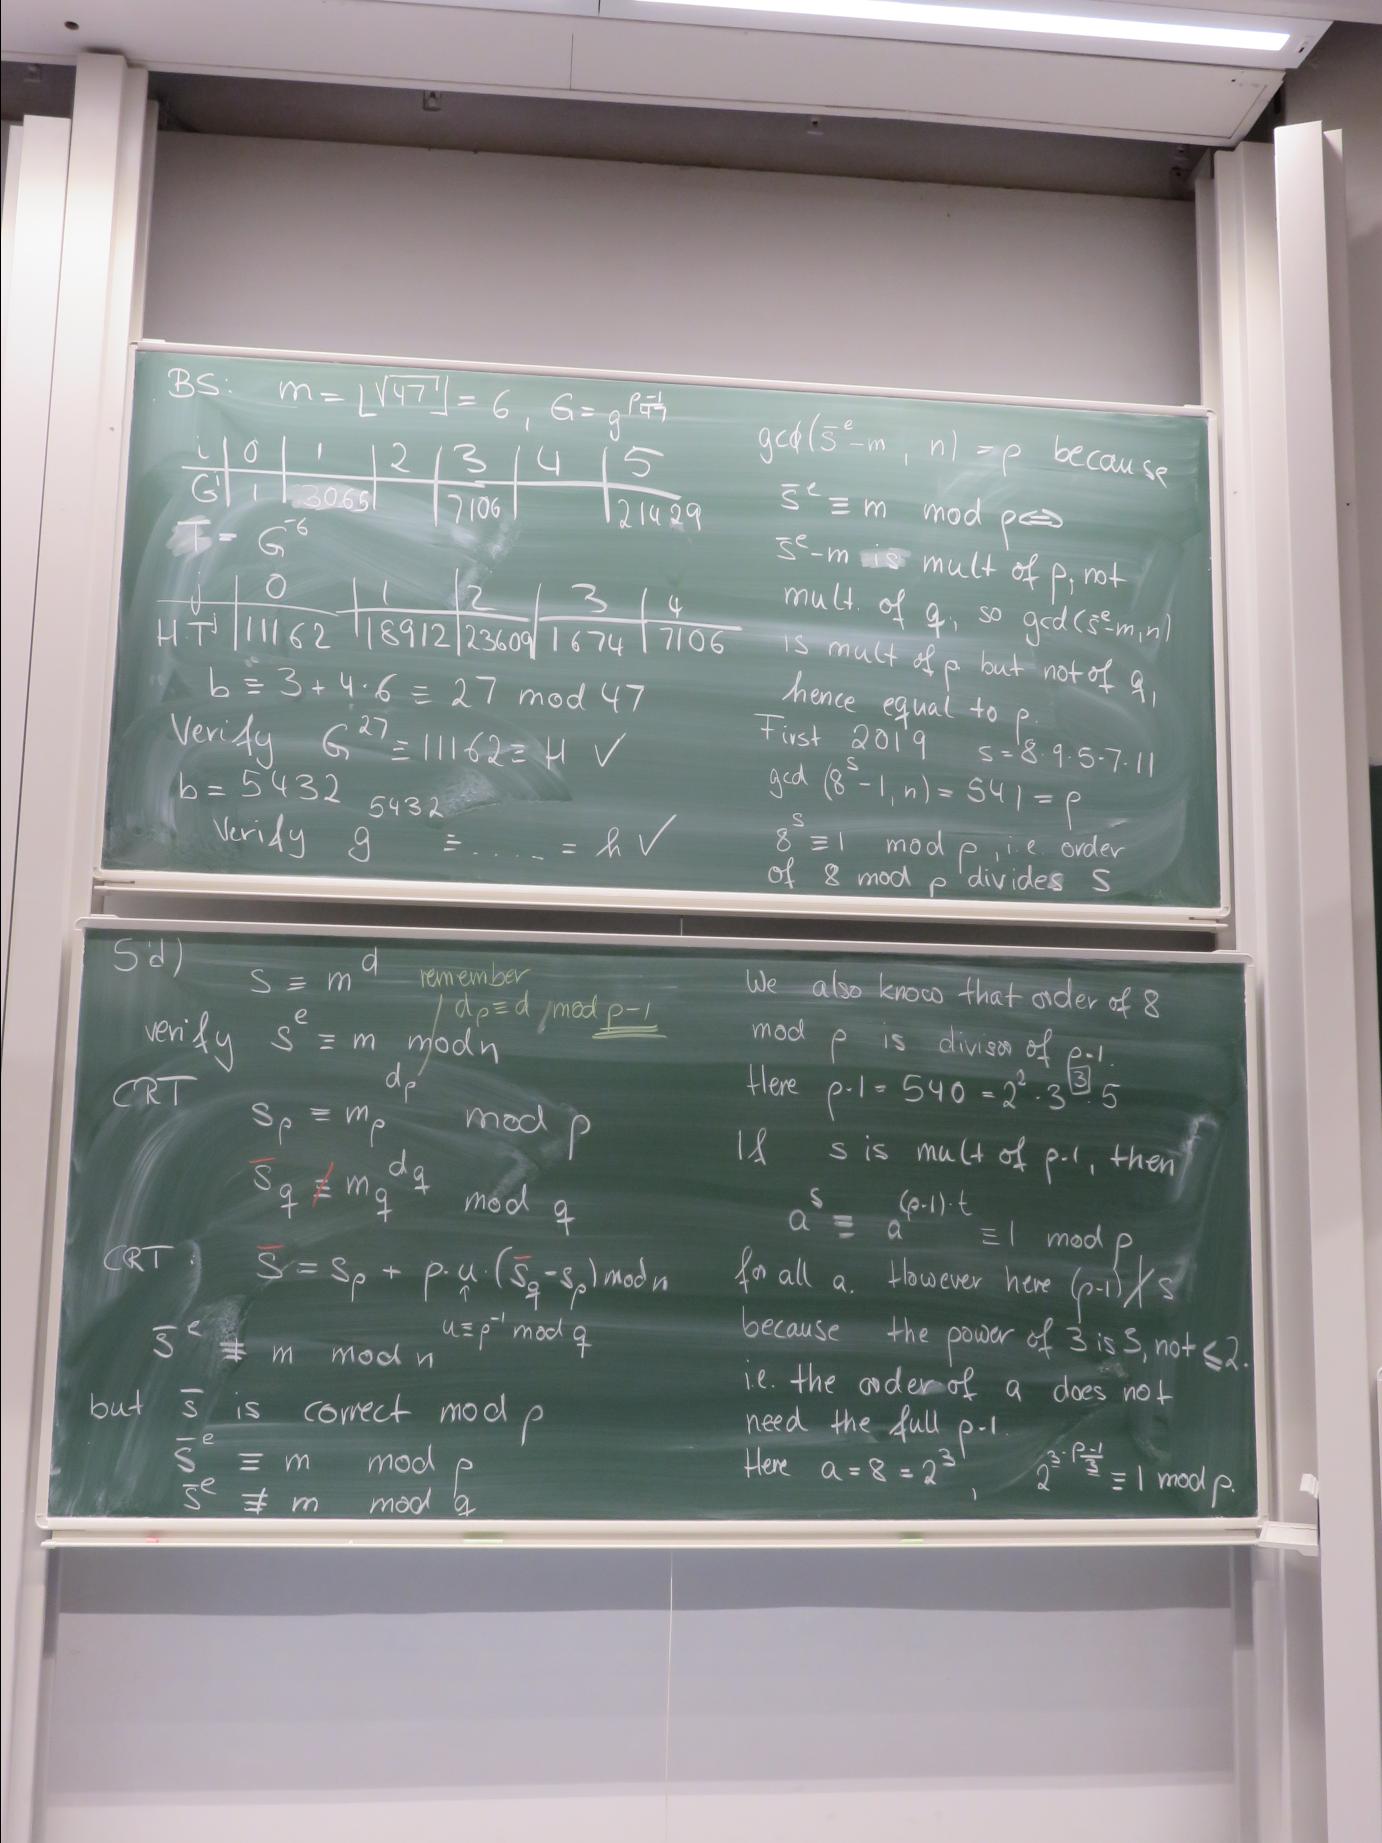 BS: m = ⌊√47⌋ = 6, G = g^{(p-1)/47}
i | 0 | 1 | 2 | 3 | 4 | 5
G^i | 1 | 3065 | | 7106 | | 21429
T = G^{-6}
j | 0 | 1 | 2 | 3 | 4
H·T^j | 11162 | 18912 | 23609 | 1674 | 7106
b ≡ 3 + 4·6 ≡ 27 mod 47
Verify G^{27} ≡ 11162 = H ✓
b = 5432
Verify g^{5432} ≡ ..... = h ✓
gcd(s̄^e - m, n) = p because
s̄^e ≡ m mod p ⇔
s̄^e - m is mult of p, not
mult. of q, so gcd(s̄^e - m, n)
is mult of p but not of q,
hence equal to p.
First 2019 s = 8·9·5·7·11
gcd (8^s - 1, n) = 541 = p
8^s ≡ 1 mod p, i.e. order
of 8 mod p divides s
5d)
s ≡ m^d remember
d_p ≡ d mod p-1
verify s^e ≡ m mod n
CRT
s_p ≡ m_p^{d_p} mod p
s̄_q ≢ m_q^{d_q} mod q
CRT: s̄ = s_p + p·u·(s̄_q - s_p) mod n
u ≡ p^{-1} mod q
s̄^e ≢ m mod n
but s̄ is correct mod p
s̄^e ≡ m mod p
s̄^e ≢ m mod q
We also know that order of 8
mod p is divisor of p-1.
Here p-1 = 540 = 2^2·3^3·5
If s is mult of p-1, then
a^s ≡ a^{(p-1)·t} ≡ 1 mod p
for all a. However here (p-1) ∤ s
because the power of 3 is 3, not ≤ 2.
i.e. the order of a does not
need the full p-1.
Here a = 8 = 2^3, 2^{3·(p-1)/3} ≡ 1 mod p.